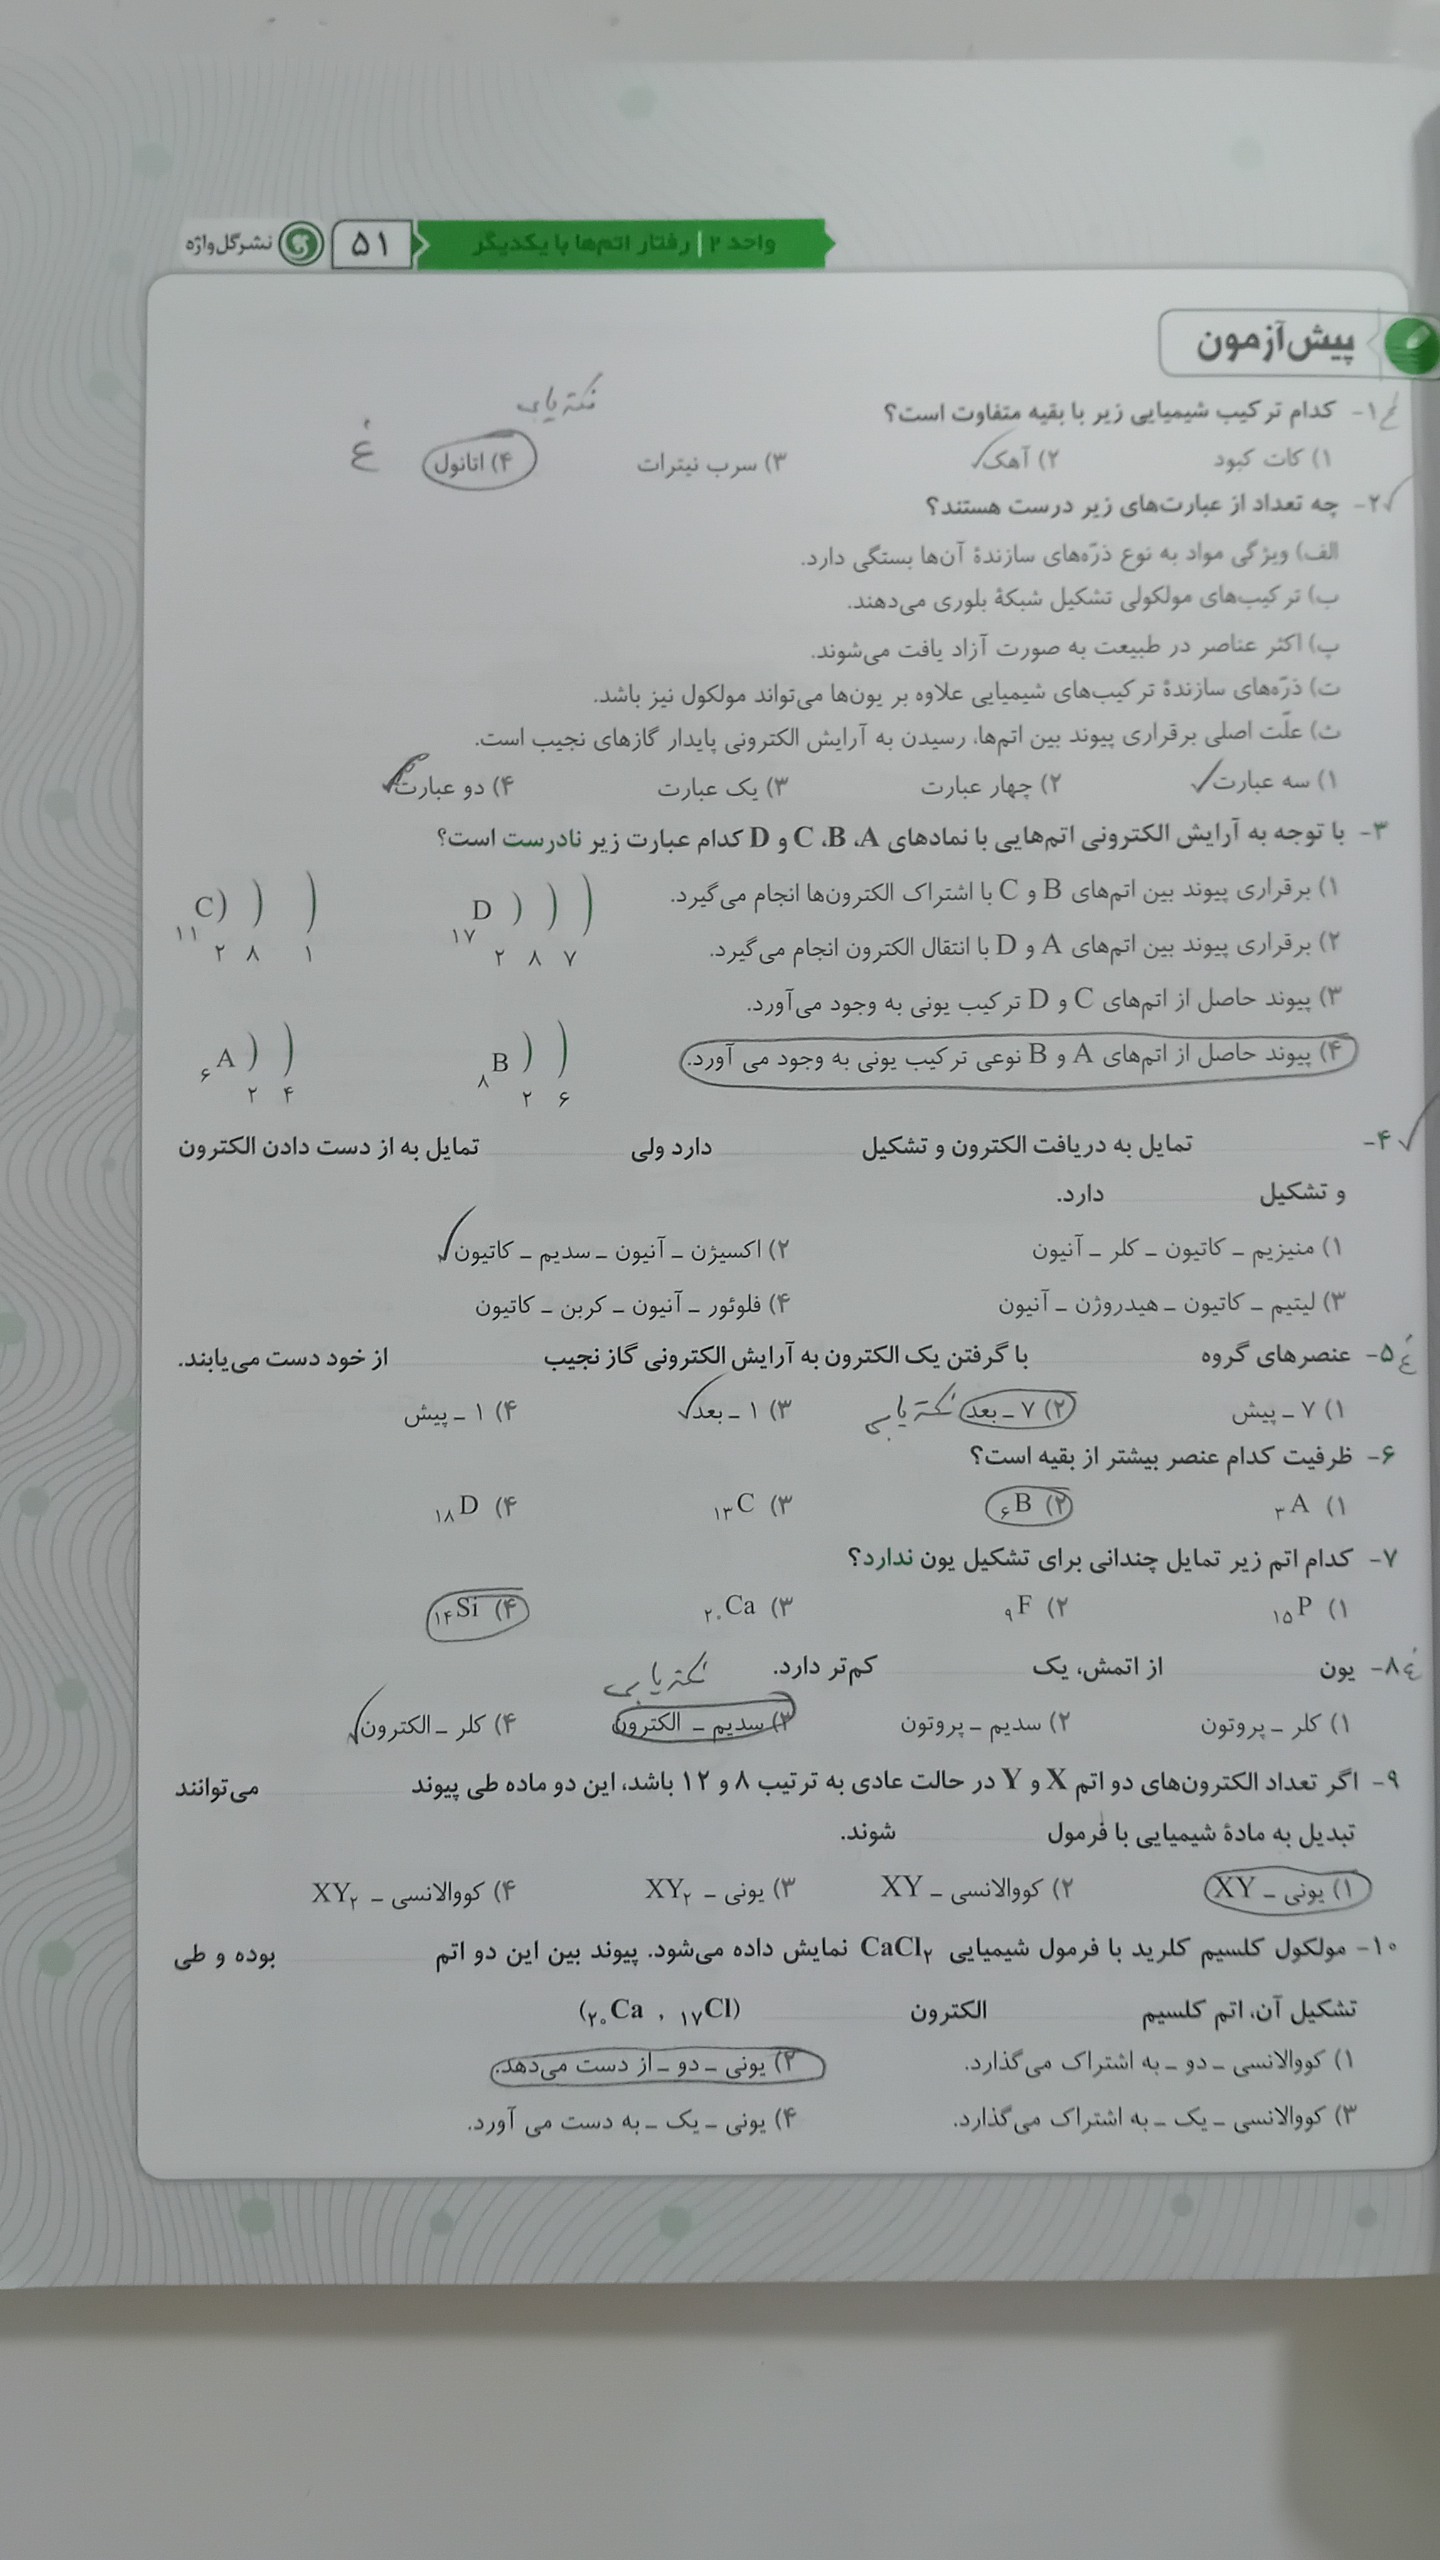 واحد ۲ | رفتار اتم‌ها با یکدیگر ۵۱ نشر گل‌واژه
پیش‌آزمون
نکته یابی
۱- کدام ترکیب شیمیایی زیر با بقیه متفاوت است؟
۱) کات کبود ۲) آهک ۳) سرب نیترات ۴) اتانول غ
۲- چه تعداد از عبارت‌های زیر درست هستند؟
الف) ویژگی مواد به نوع ذرّه‌های سازندهٔ آن‌ها بستگی دارد.
ب) ترکیب‌های مولکولی تشکیل شبکهٔ بلوری می‌دهند.
پ) اکثر عناصر در طبیعت به صورت آزاد یافت می‌شوند.
ت) ذرّه‌های سازندهٔ ترکیب‌های شیمیایی علاوه بر یون‌ها می‌تواند مولکول نیز باشد.
ث) علّت اصلی برقراری پیوند بین اتم‌ها، رسیدن به آرایش الکترونی پایدار گازهای نجیب است.
۱) سه عبارت ۲) چهار عبارت ۳) یک عبارت ۴) دو عبارت
۳- با توجه به آرایش الکترونی اتم‌هایی با نمادهای A، B، C و D کدام عبارت زیر نادرست است؟
۱) برقراری پیوند بین اتم‌های B و C با اشتراک الکترون‌ها انجام می‌گیرد.
۱۷ D ) ) ) ۲ ۸ ۷
۱۱ C ) ) ) ۲ ۸ ۱
۲) برقراری پیوند بین اتم‌های A و D با انتقال الکترون انجام می‌گیرد.
۳) پیوند حاصل از اتم‌های C و D ترکیب یونی به وجود می‌آورد.
۴) پیوند حاصل از اتم‌های A و B نوعی ترکیب یونی به وجود می آورد.
۸ B ) ) ۲ ۶
۶ A ) ) ۲ ۴
۴- تمایل به دریافت الکترون و تشکیل دارد ولی تمایل به از دست دادن الکترون
و تشکیل دارد.
۱) منیزیم - کاتیون - کلر - آنیون ۲) اکسیژن - آنیون - سدیم - کاتیون
۳) لیتیم - کاتیون - هیدروژن - آنیون ۴) فلوئور - آنیون - کربن - کاتیون
غ ۵- عنصرهای گروه با گرفتن یک الکترون به آرایش الکترونی گاز نجیب از خود دست می‌یابند.
۱) ۷ - پیش ۲) ۷ - بعد نکته یابی ۳) ۱ - بعد ۴) ۱ - پیش
۶- ظرفیت کدام عنصر بیشتر از بقیه است؟
۱) ₃A ۲) ₆B ۳) ₁₃C ۴) ₁₈D
۷- کدام اتم زیر تمایل چندانی برای تشکیل یون ندارد؟
۱) ₁₅P ۲) ₉F ۳) ₂₀Ca ۴) ₁₄Si
غ ۸- یون از اتمش، یک کم‌تر دارد.
نکته یابی
۱) کلر - پروتون ۲) سدیم - پروتون ۳) سدیم - الکترون ۴) کلر - الکترون
۹- اگر تعداد الکترون‌های دو اتم X و Y در حالت عادی به ترتیب ۸ و ۱۲ باشد، این دو ماده طی پیوند می‌توانند
تبدیل به مادهٔ شیمیایی با فرمول شوند.
۱) یونی - XY ۲) کووالانسی - XY ۳) یونی - XY₂ ۴) کووالانسی - XY₂
۱۰- مولکول کلسیم کلرید با فرمول شیمیایی CaCl₂ نمایش داده می‌شود. پیوند بین این دو اتم بوده و طی
تشکیل آن، اتم کلسیم الکترون (₂₀Ca , ₁₇Cl)
۱) کووالانسی - دو - به اشتراک می‌گذارد. ۲) یونی - دو - از دست می‌دهد.
۳) کووالانسی - یک - به اشتراک می‌گذارد. ۴) یونی - یک - به دست می آورد.